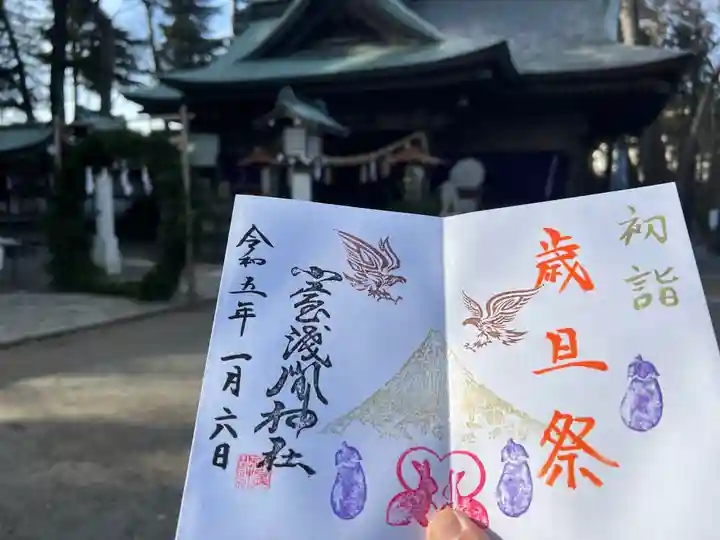 初詣
歳旦祭
富士浅間神社
令和五年一月六日